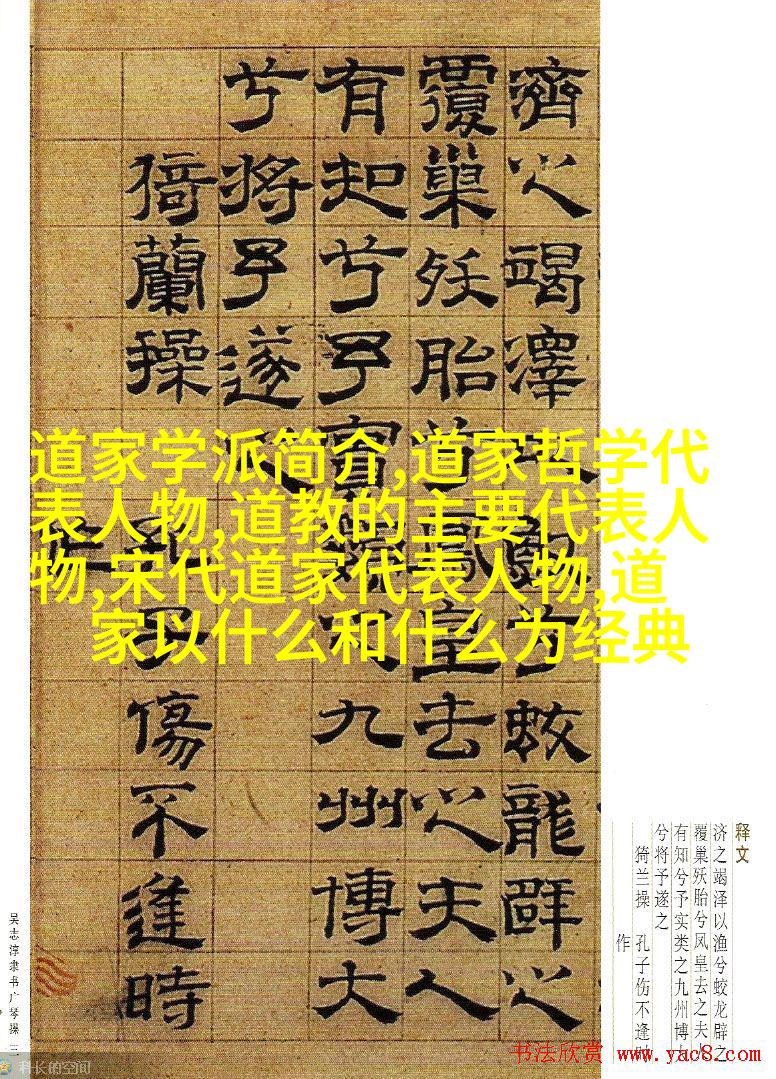 濟之竭澤以漁兮蛟龍辟之
覆巢殀胎兮鳳皇去之夫人
有知兮予實類之九州博大
兮將予遂之
猗蘭操 孔子傷不逢時
作
道家学派简介,道家哲学代
表人物,道教的主要代表人
物,宋代道家代表人物,道
家以什么和什么为经典
释文
济之竭泽以渔兮蛟龙辟之
覆巢殀胎兮凤皇去之夫人
有知兮予实类之九州博
兮将予遂之
猗兰操 孔子伤不逢时
作
吴志淳隶书广琴操 三
科长的空间
书法欣赏 www.yac8.com